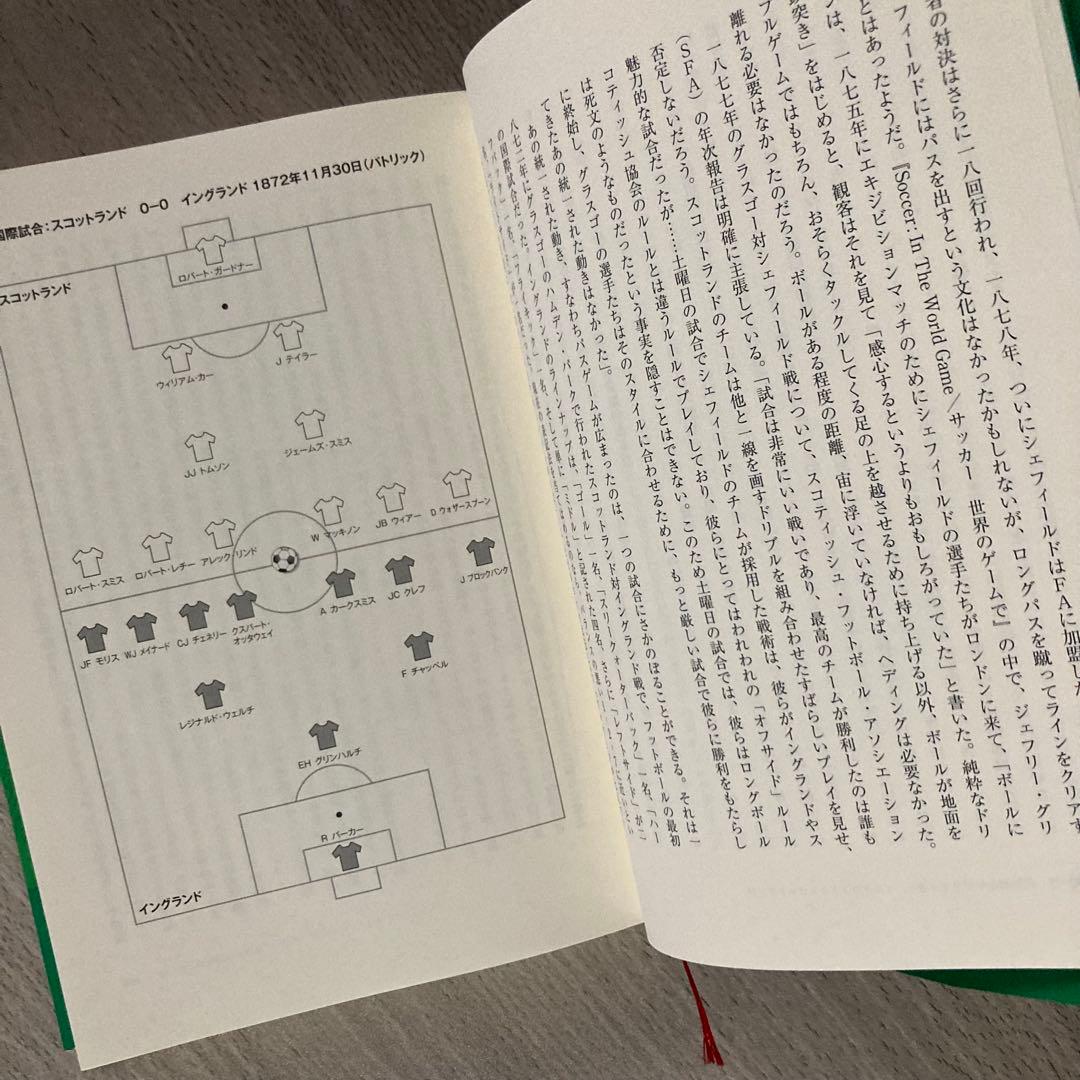 者の対決はさらに一八回行われ、一八七八年、ついにシェフィールドはFAに加盟した
フィールドにはパスを出すという文化はなかったかもしれないが、ロングパスを蹴ってラインをクリアす
とはあったようだ。『Soccer: In The World Game／サッカー　世界のゲームで』の中で、ジェフリー・グリ
ンは、一八七五年にエキジビションマッチのためにシェフィールドの選手たちがロンドンに来て、「ボールに
突き」をはじめると、観客はそれを見て「感心するというよりもおもしろがっていた」と書いた。純粋なドリ
ブルゲームではもちろん、おそらくタックルしてくる足の上を越させるために持ち上げる以外、ボールが地面を
離れる必要はなかったのだろう。ボールがある程度の距離、宙に浮いていなければ、ヘディングは必要なかった。
一八七七年のグラスゴー対シェフィールド戦について、スコティッシュ・フットボール・アソシエーション
（SFA）の年次報告は明確に主張している。「試合は非常にいい戦いであり、最高のチームが勝利したのは誰も
否定しないだろう。スコットランドのチームは他と一線を画すドリブルを組み合わせたすばらしいプレイを見せ、
魅力的な試合だったが……土曜日の試合でシェフィールドのチームが採用した戦術は、彼らがイングランドやス
コティッシュ協会のルールとは違うルールでプレイしており、彼らにとってはわれわれの「オフサイド」ルール
は死文のようなものだったという事実を隠すことはできない。このため土曜日の試合では、彼らはロングボール
に終始し、グラスゴーの選手たちはそのスタイルに合わせるために、もっと厳しい試合で彼らに勝利をもたらし
てきたあの統一された動きはなかった」。
あの統一された動き、すなわちパスゲームが広まったのは、一つの試合にさかのぼることができる。それは一
八七二年にグラスゴーのハムデン・パークで行われたスコットランド対イングランド戦で、フットボールの最初
の国際試合だった。イングランドのラインナップは、「ゴール」一名、「スリークォーターバック」一名、「ハー
フバック」一名、「フライキック」一名、そして単に「ミドル」と記された四名、さらに「レフトサイド」が二
国際試合：スコットランド　0−0　イングランド 1872年11月30日（パトリック）
スコットランド
ロバート・ガードナー
J テイラー
ウィリアム・カー
ジェームズ・スミス
JJ トムソン
D ウォザースプーン
JB ウィアー
W マッキノン
アレック リンド
ロバート・レチー
ロバート・スミス
J ブロックバンク
JC クレフ
A カークスミス
クスバート・
オッタウェイ
CJ チェネリー
WJ メイナード
JF モリス
F チャッペル
レジナルド・ウェルチ
EH グリンハルチ
R バーカー
イングランド